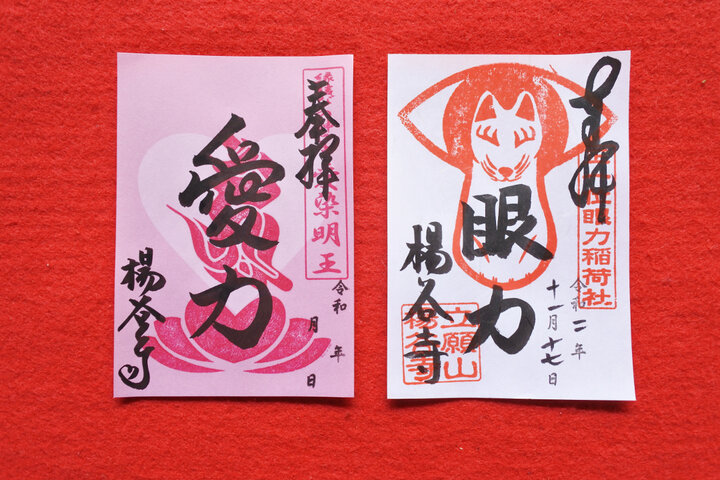 奉拝
染明王
令和 年
月 日
愛力
楊谷寺
奉拝
眼力稲荷社
令和二年
十一月十七日
眼力
楊谷寺
立願山
楊谷寺